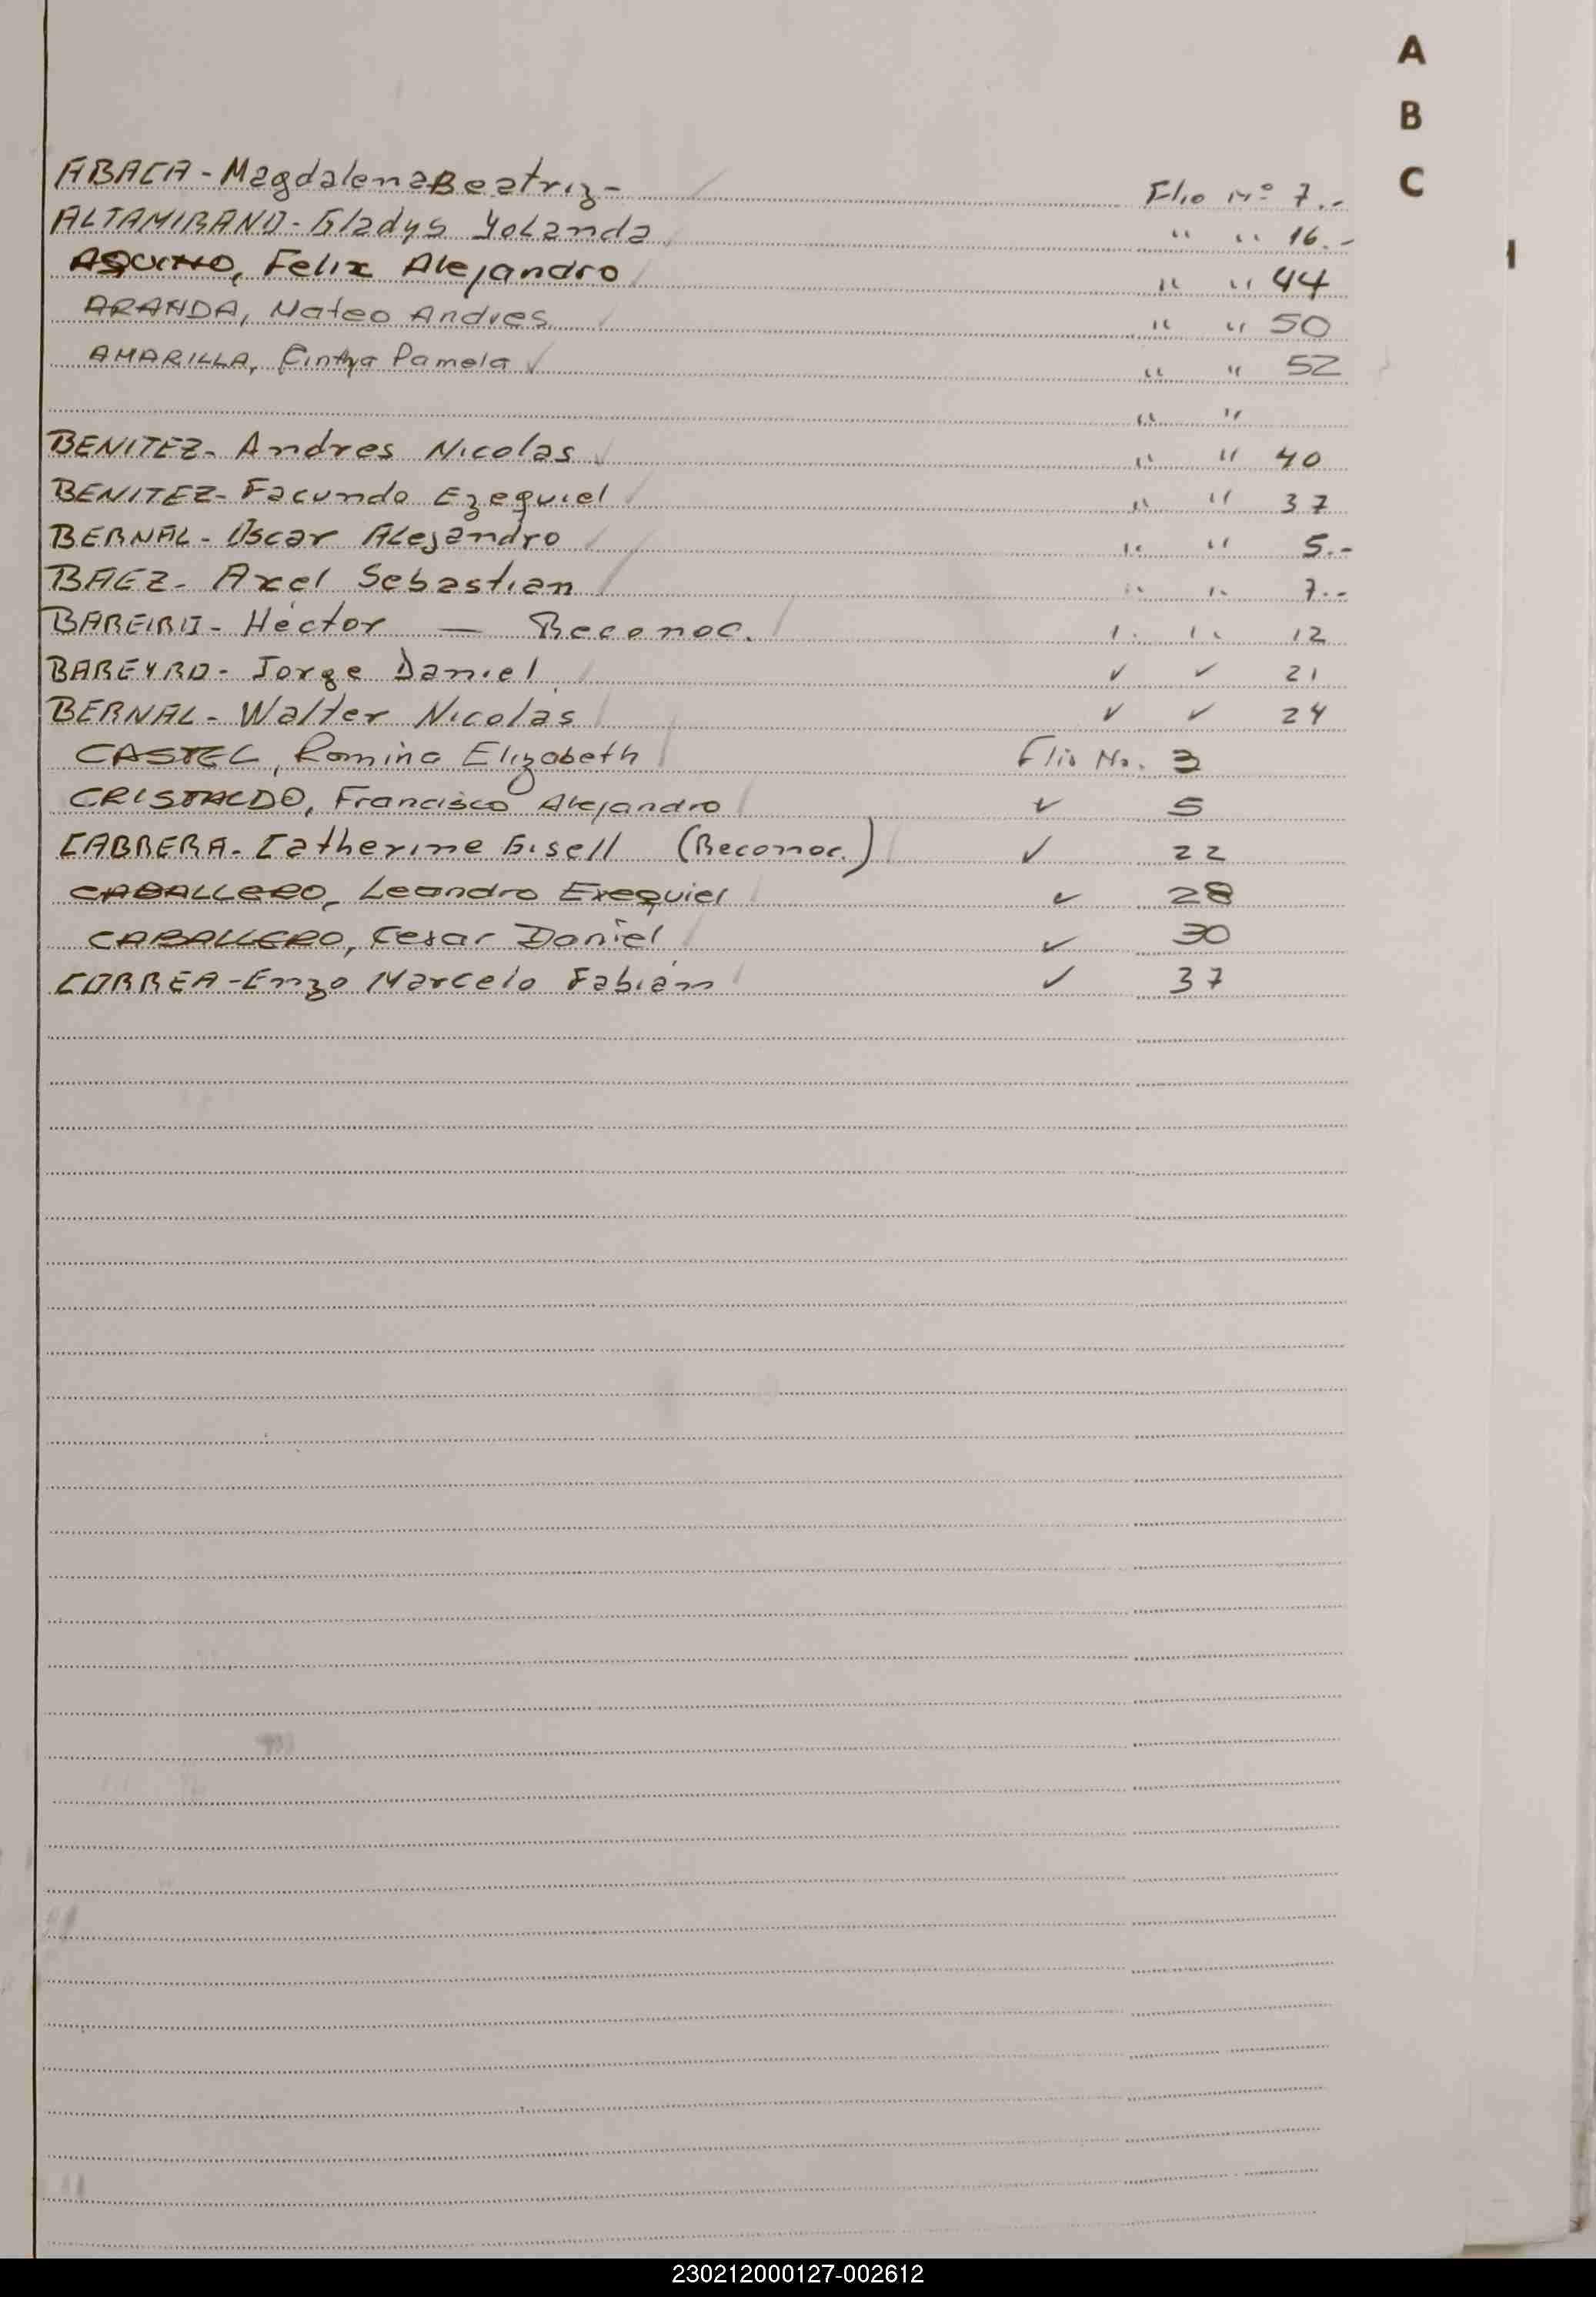 A
B
C
ABACA - Magdalena Beatriz - Flio Nº 7.-
ALTAMIRANO - Gladys Yolanda " " 16.-
AQUINO, Felix Alejandro " " 44
ARANDA, Mateo Andres " " 50
AMARILLA, Cinthya Pamela ✓ " " 52
" "
BENITEZ - Andres Nicolas " " 40
BENITEZ - Facundo Ezequiel " " 37
BERNAL - Oscar Alejandro " " 5.-
BAEZ - Axel Sebastian " " 7.-
BAREIRO - Héctor — Reconoc. " " 12
BAREYRO - Jorge Daniel ✓ ✓ 21
BERNAL - Walter Nicolas ✓ ✓ 24
CASTEL, Romina Elizabeth Flio No. 3
CRISTALDO, Francisco Alejandro ✓ 5
CABRERA - Catherine Gisell (Reconoc.) ✓ 22
CABALLERO, Leandro Exequiel ✓ 28
CABALLERO, Cesar Daniel ✓ 30
CORREA - Enzo Marcelo Fabián ✓ 37
230212000127-002612